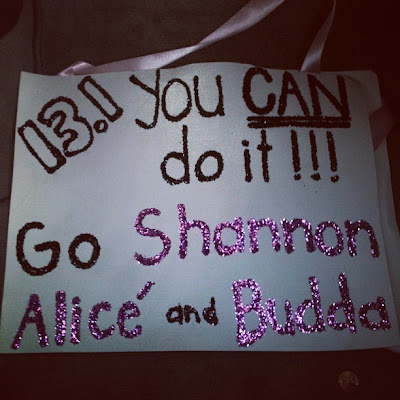 13.1 you CAN
do it!!!
Go Shannon
Alicé and Budda